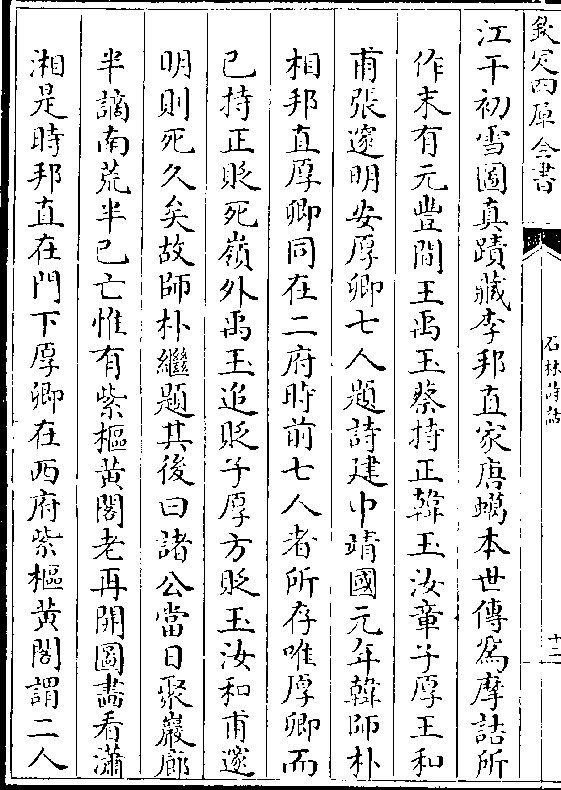 欽定四庫全書
石林詩話
十二
江干初雪圖真蹟藏李邦直家唐蠟本世傳為摩詰所
作末有元豐間王禹玉蔡持正韓玉汝章子厚王和
甫張邃明安厚卿七人題詩建中靖國元年韓師朴
相邦直厚卿同在二府時前七人者所存唯厚卿而
已持正貶死嶺外禹玉追貶子厚方貶玉汝和甫邃
明則死久矣故師朴繼題其後曰諸公當日聚巖廊
半謫南荒半已亡惟有紫樞黃閣老再開圖畵看瀟
湘是時邦直在門下厚卿在西府紫樞黃閣謂二人